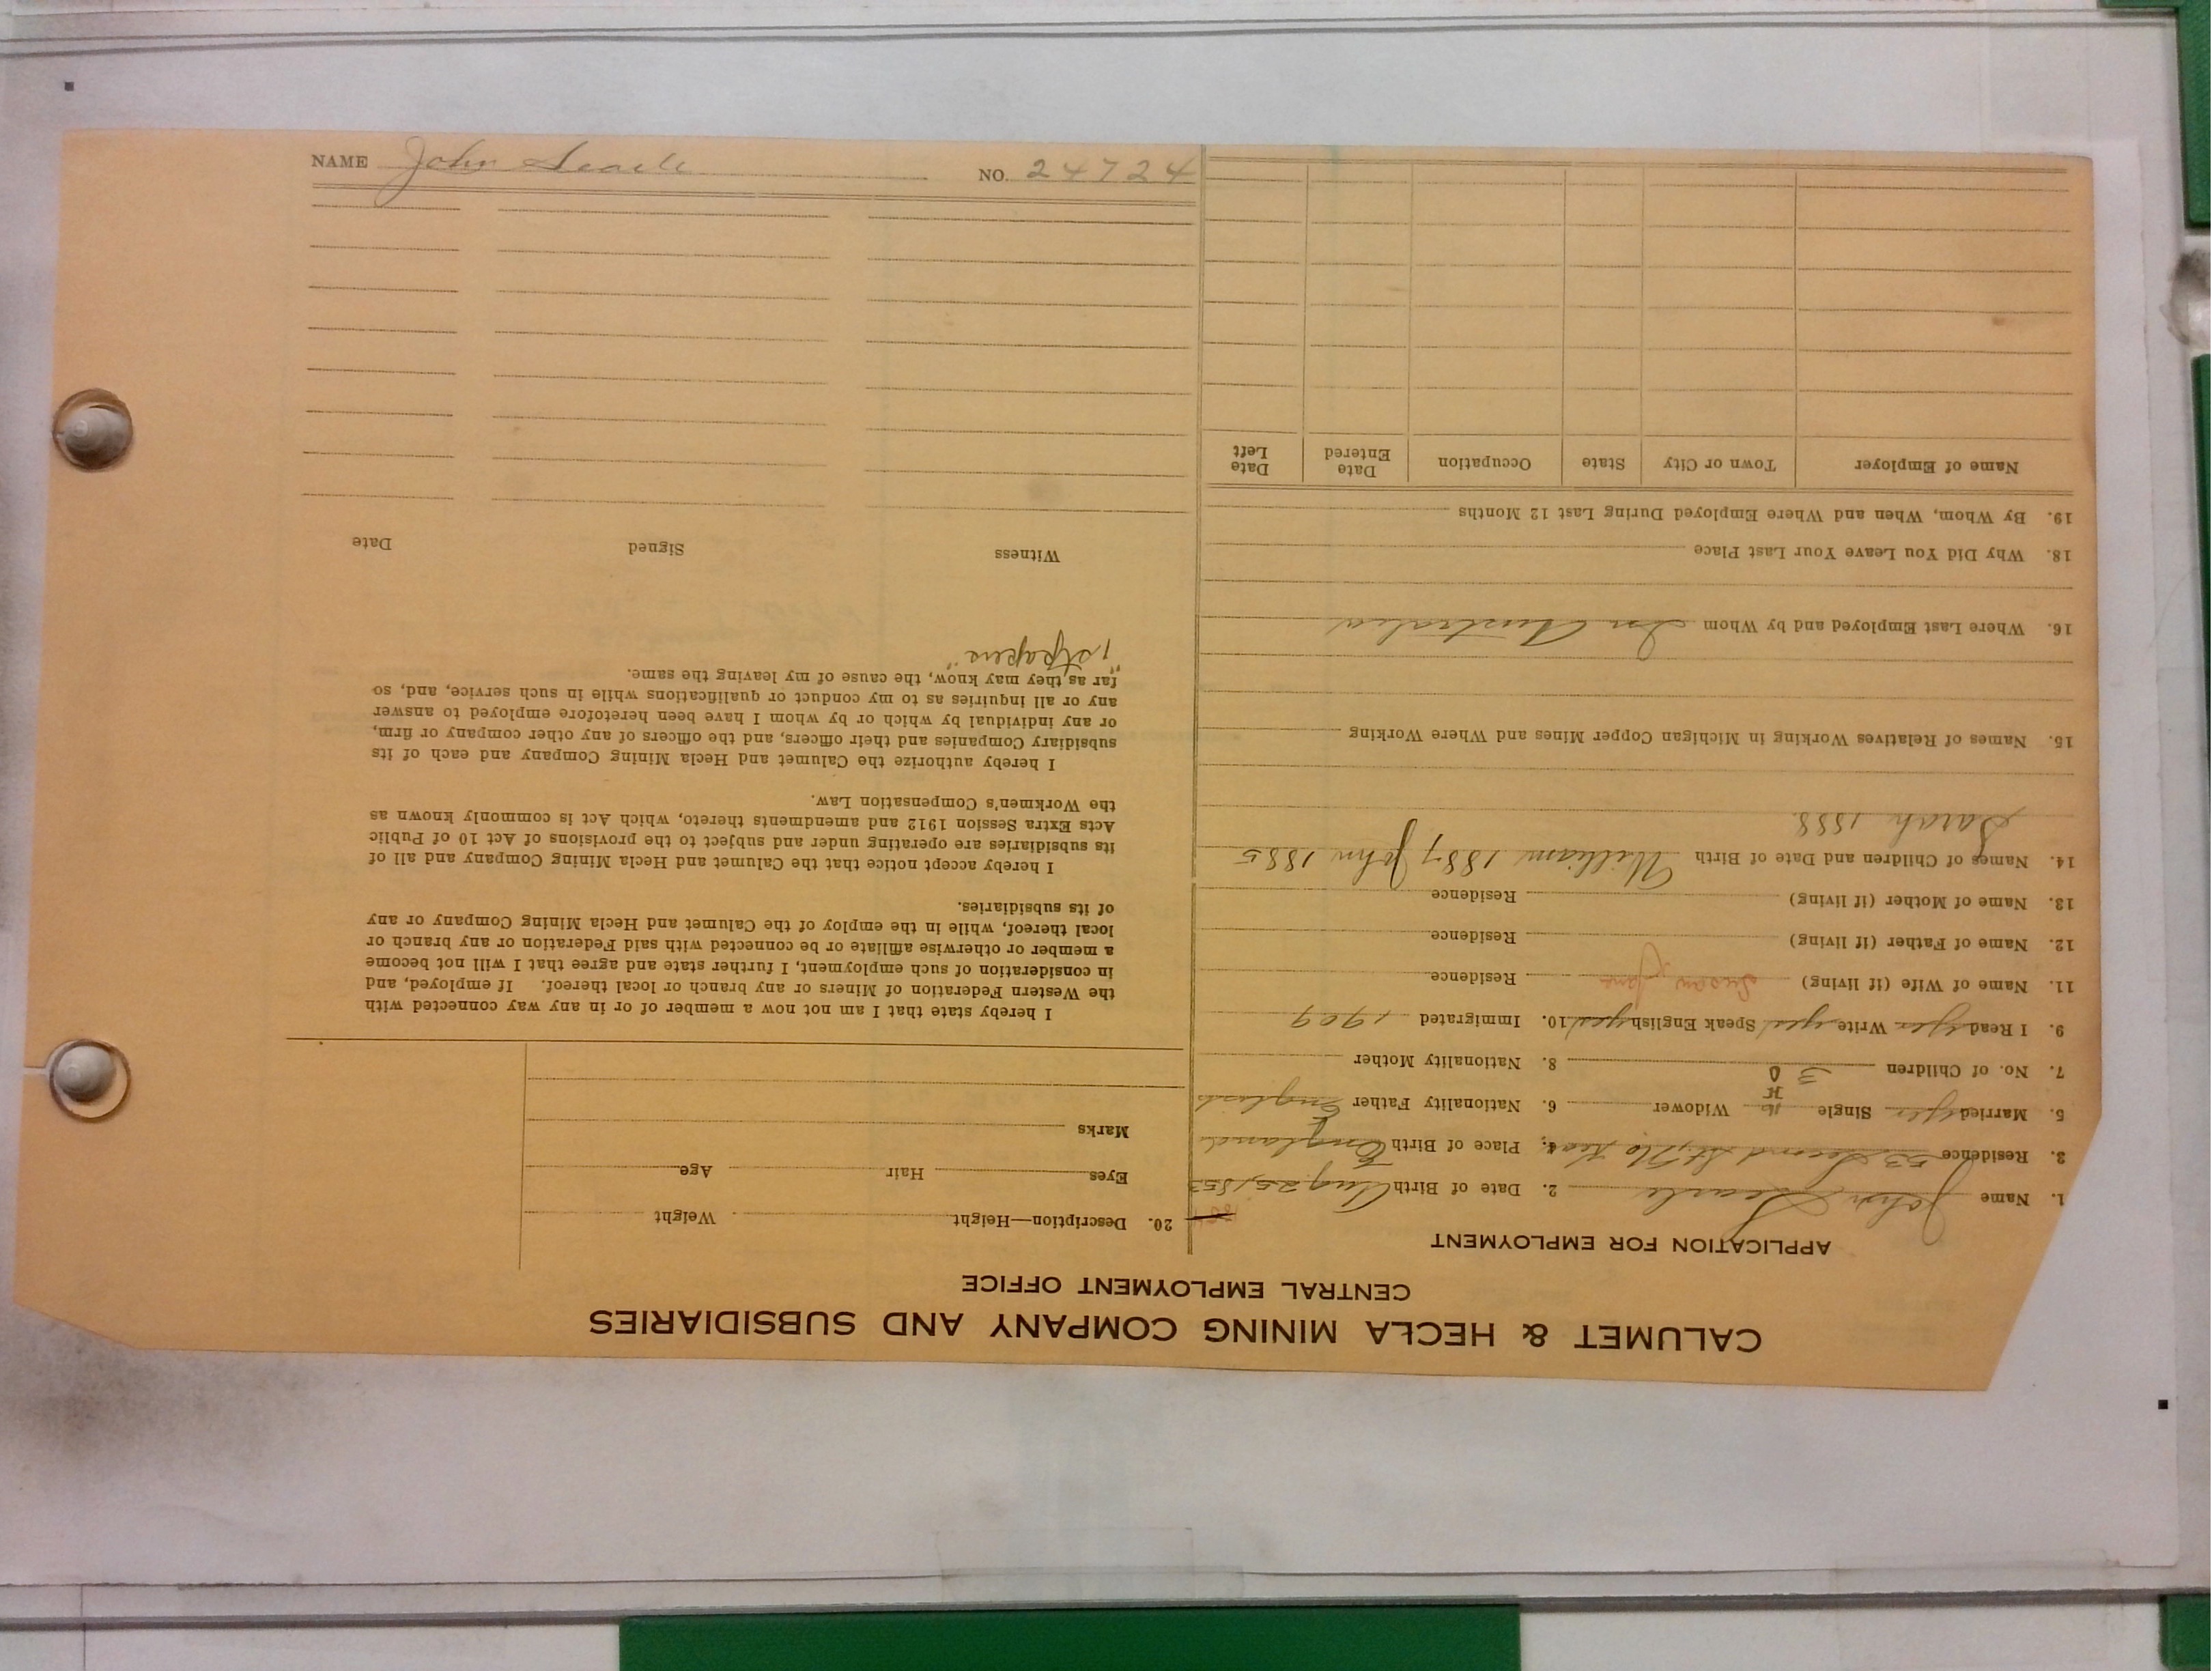 CALUMET & HECLA MINING COMPANY AND SUBSIDIARIES
CENTRAL EMPLOYMENT OFFICE
APPLICATION FOR EMPLOYMENT
1. Name John Searle 2. Date of Birth Aug. 25, 1853
3. Residence 53 Second St, 4. Place of Birth England
5. Married yes Single Widower 6. Nationality Father English
7. No. of Children 3 8. Nationality Mother
9. I Read yes Write yes Speak English yes 10. Immigrated 1909
11. Name of Wife (if living) Susan Jane Residence
12. Name of Father (if living) Residence
13. Name of Mother (if living) Residence
14. Names of Children and Date of Birth William 1887 John 1885
Sarah 1888
15. Names of Relatives Working in Michigan Copper Mines and Where Working
16. Where Last Employed and by Whom In Australia
18. Why Did You Leave Your Last Place
19. By Whom, When and Where Employed During Last 12 Months
Name of Employer Town or City State Occupation Date Entered Date Left
20. Description—Height Weight
Eyes Hair Age
Marks
I hereby state that I am not now a member of or in any way connected with
the Western Federation of Miners or any branch or local thereof. If employed, and
in consideration of such employment, I further state and agree that I will not become
a member or otherwise affiliate or be connected with said Federation or any branch or
local thereof, while in the employ of the Calumet and Hecla Mining Company or any
of its subsidiaries.
I hereby accept notice that the Calumet and Hecla Mining Company and all of
its subsidiaries are operating under and subject to the provisions of Act 10 of Public
Acts Extra Session 1912 and amendments thereto, which Act is commonly known as
the Workmen's Compensation Law.
I hereby authorize the Calumet and Hecla Mining Company and each of its
subsidiary Companies and their officers, and the officers of any other company or firm,
or any individual by which or by whom I have been heretofore employed to answer
any or all inquiries as to my conduct or qualifications while in such service, and, so
far as they may know, the cause of my leaving the same.
"1st papers"
Witness Signed Date
NAME John Searle NO. 24724